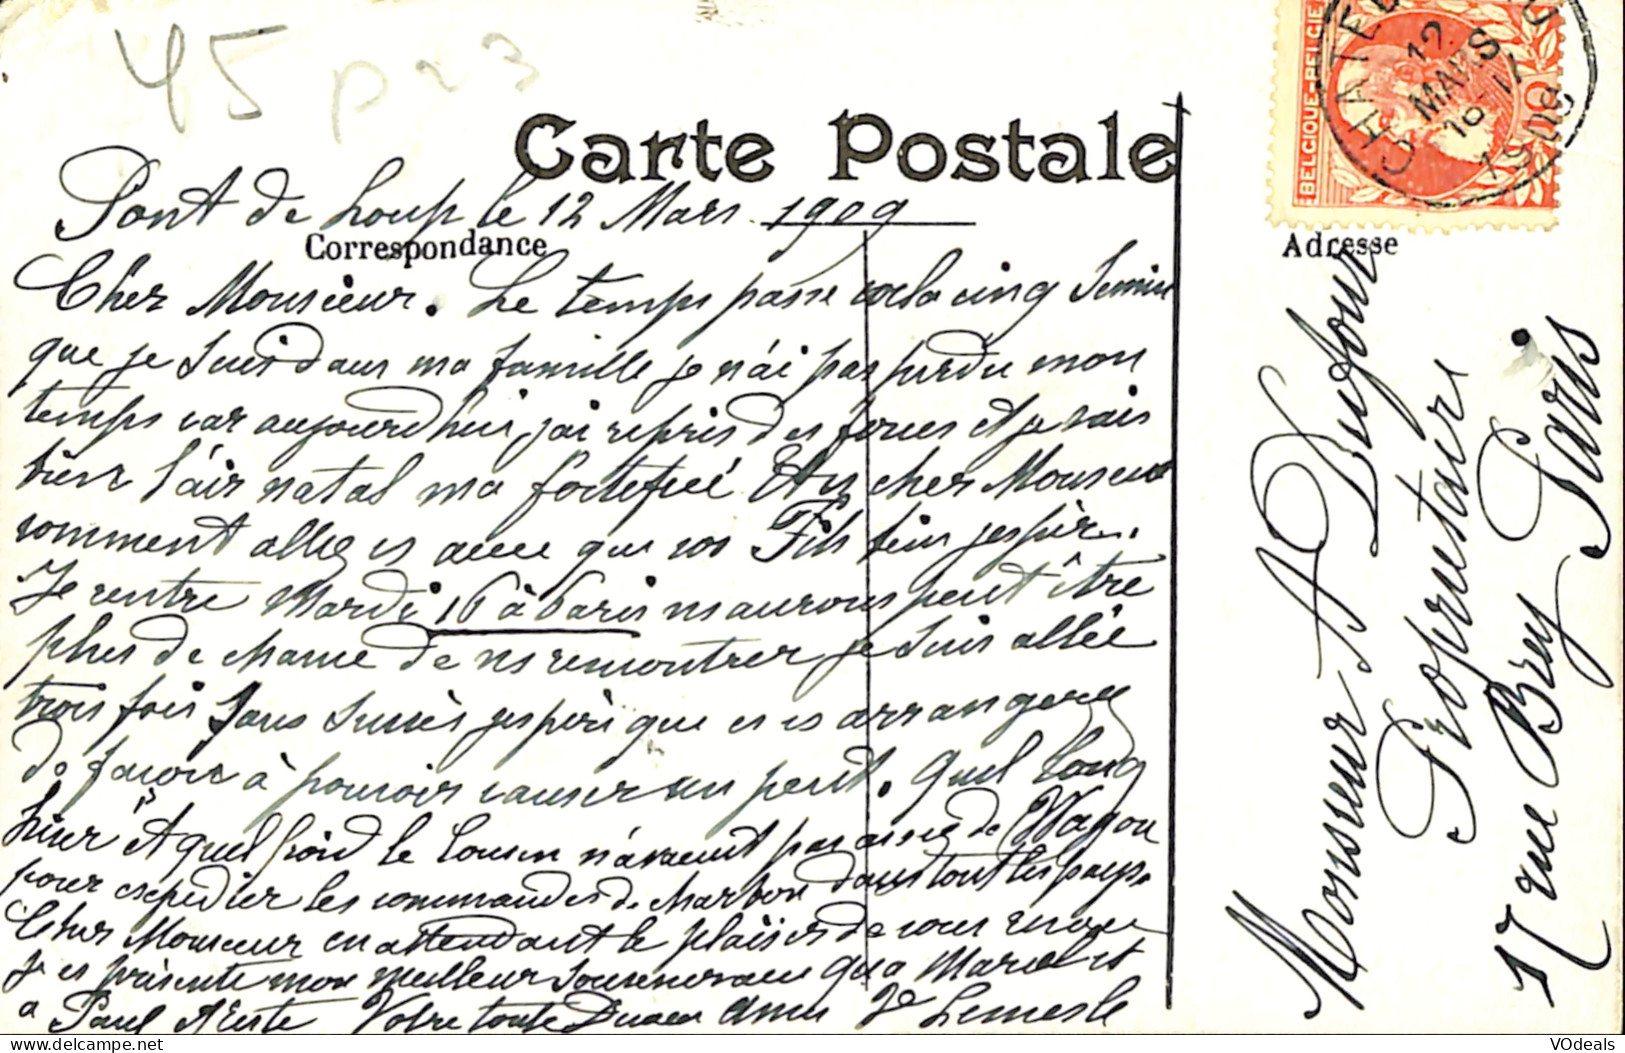 45 p 23
Carte Postale
Pont de Loup le 12 Mars 1909
Correspondance
Cher Monsieur. Le temps passe voila cinq Semin
que je suis dans ma famille je n'ai pas perdu mon
temps car aujourd'hui j'ai repris des forces et je vais
bien l'air natal ma fortefié Et vs cher Monsieur
comment allez vs ainsi que vos Fils bien j'espère.
Je rentre Mardi 16 à Paris ns aurons peut être
plus de chance de ns remontrer je suis allée
trois fois sans succès j'espère que vs vs arrangerez
de façon à pouvoir causer un peut. Quel long
hiver Et quel froid le Cousin n'avait pas assez de Wagon
pour expedier les commandes de charbon dans tout les pays
Cher Monsieur en attendant le plaisir de vous
Je vs présente mon meilleur Souvenir ainsi qu'a Marcel et
a Paul Votre toute amie Ve Lemesle
BELGIQUE-BELGIE
10
CHATEL
12
MARS
16-17
1909
Adresse
Monsieur A Dufour
Propriétaire
17 rue Brey Paris
VOdeals